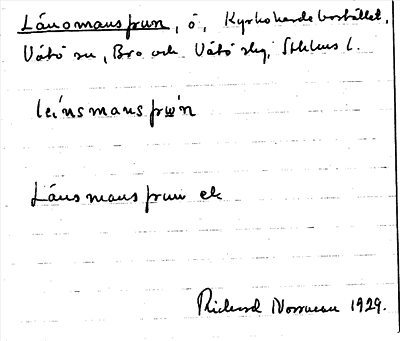 Länsmansgrun, ö, Kyrkoherdebostället,
Vätö sn, Bro och Vätö skg, Sthlms l.
le:́nsmansgrɯ̀n
Länsmansgrun ek
Rickard Norrman 1929.